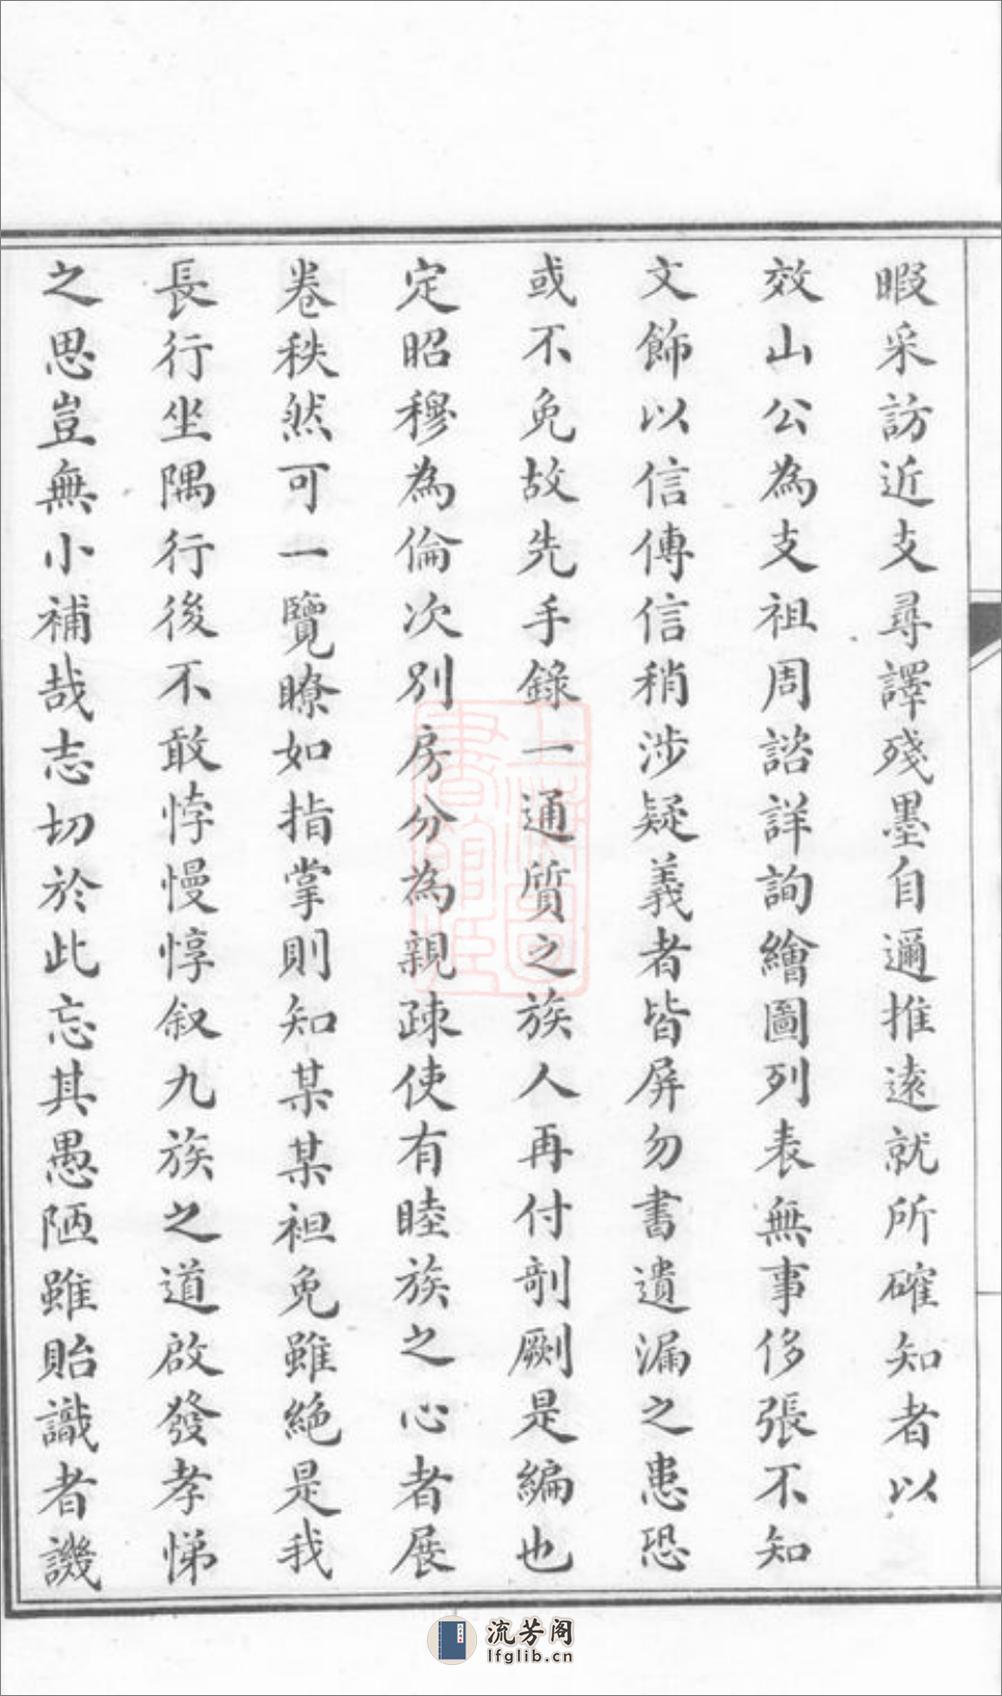 暇采訪近支尋譯殘墨自邇推遠就所確知者以
效山公為支祖周諮詳詢繪圖列表無事侈張不知
文飾以信傳信稍涉疑義者皆屏勿書遺漏之患恐
或不免故先手錄一通質之族人再付剞劂是編也
定昭穆為倫次別房分為親疎使有睦族之心者展
卷秩然可一覽瞭如指掌則知某某袒免雖絕是我
長行坐隅行後不敢悖慢惇叙九族之道啟發孝悌
之思豈無小補哉志切於此忘其愚陋雖貽識者譏
上海圖書館藏
流芳阁
lfglib.cn